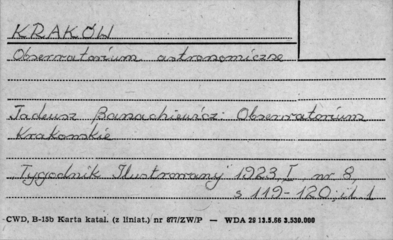 KRAKÓW
Obserwatorium astronomiczne
Tadeusz Banachiewicz: Obserwatorium
Krakowskie
"Tygodnik Ilustrowany" 1923, I, nr 8,
s 119-120; il. 1
CWD, B-15b Karta katal. (z liniat.) nr 877/ZW/P — WDA 29 13.5.66 3,530.000